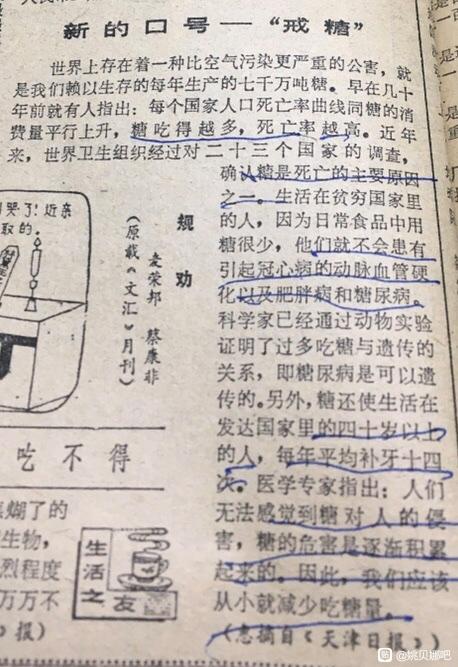 新的口号—“戒糖”
世界上存在着一种比空气污染更严重的公害，就
是我们赖以生存的每年生产的七千万吨糖。早在几十
年前就有人指出：每个国家人口死亡率曲线同糖的消
费量平行上升，糖吃得越多，死亡率越高。近年
来，世界卫生组织经过对二十三个国家的调查，
确认糖是死亡的主要原因
之一。生活在贫穷国家里
的人，因为日常食品中用
糖很少，他们就不会患有
引起冠心病的动脉血管硬
化以及肥胖病和糖尿病。
科学家已经通过动物实验
证明了过多吃糖与遗传的
关系，即糖尿病是可以遗
传的。另外，糖还使生活在
发达国家里的四十岁以上
的人，每年平均补牙十四
次。医学专家指出：人们
无法感觉到糖对人的侵
害，糖的危害是逐渐积累
起来的。因此，我们应该
从小就减少吃糖量。
（惠摘自《天津日报》）
哭了！近亲
取的。
规劝
麦荣邦 蔡康非
（原载《文汇》月刊）
吃不得
糊了的
生物，
烈程度
万万不
报）
生活之友
贴 @姚贝娜吧